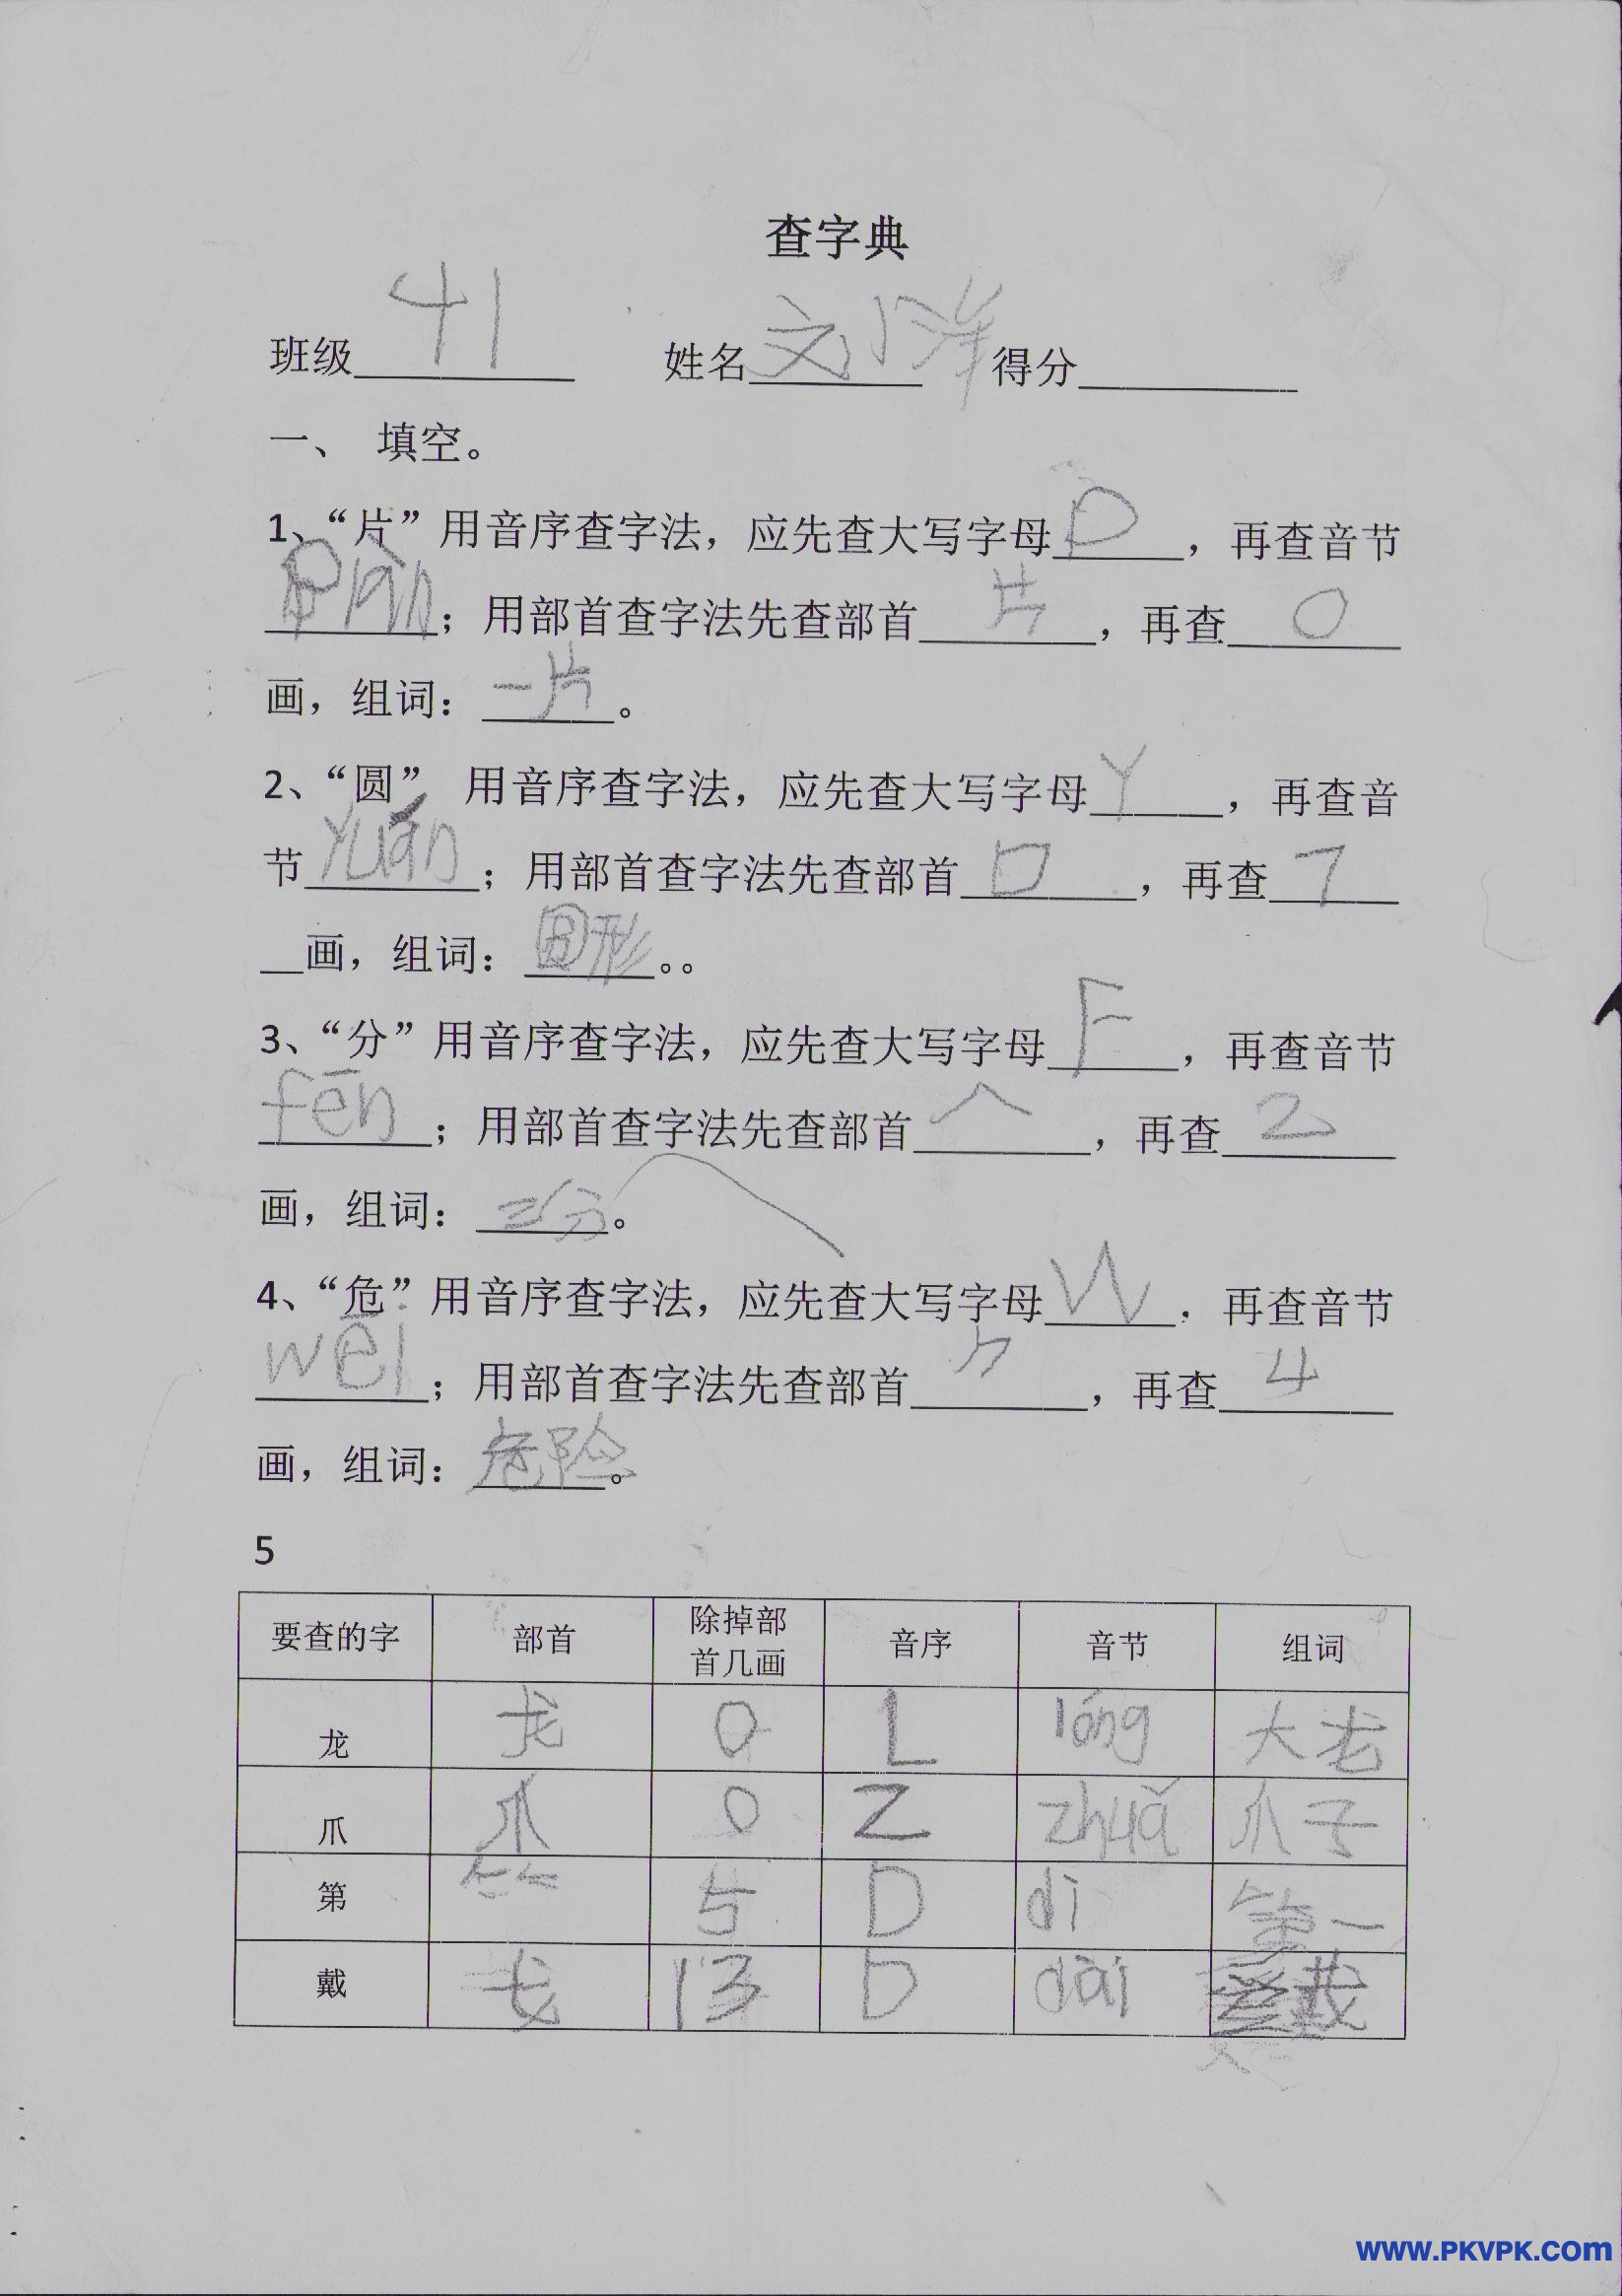 查字典
班级 41 姓名 刘小洋 得分
一、 填空。
1、“片”用音序查字法，应先查大写字母 P ，再查音节
piàn ；用部首查字法先查部首 片 ，再查 0
画，组词： 一片 。
2、“圆” 用音序查字法，应先查大写字母 Y ，再查音
节 yuán ；用部首查字法先查部首 口 ，再查 7
画，组词： 圆形 。。
3、“分”用音序查字法，应先查大写字母 F ，再查音节
fēn ；用部首查字法先查部首 八 ，再查 2
画，组词： 三分 。
4、“危”用音序查字法，应先查大写字母 W ，再查音节
wēi ；用部首查字法先查部首 ⺈ ，再查 4
画，组词： 危险 。
5
要查的字 部首 除掉部首几画 音序 音节 组词
龙 龙 0 L lóng 大龙
爪 爪 0 Z zhuǎ 爪子
第 ⺮ 5 D dì 第一
戴 戈 13 D dài
www.PKVPK.com